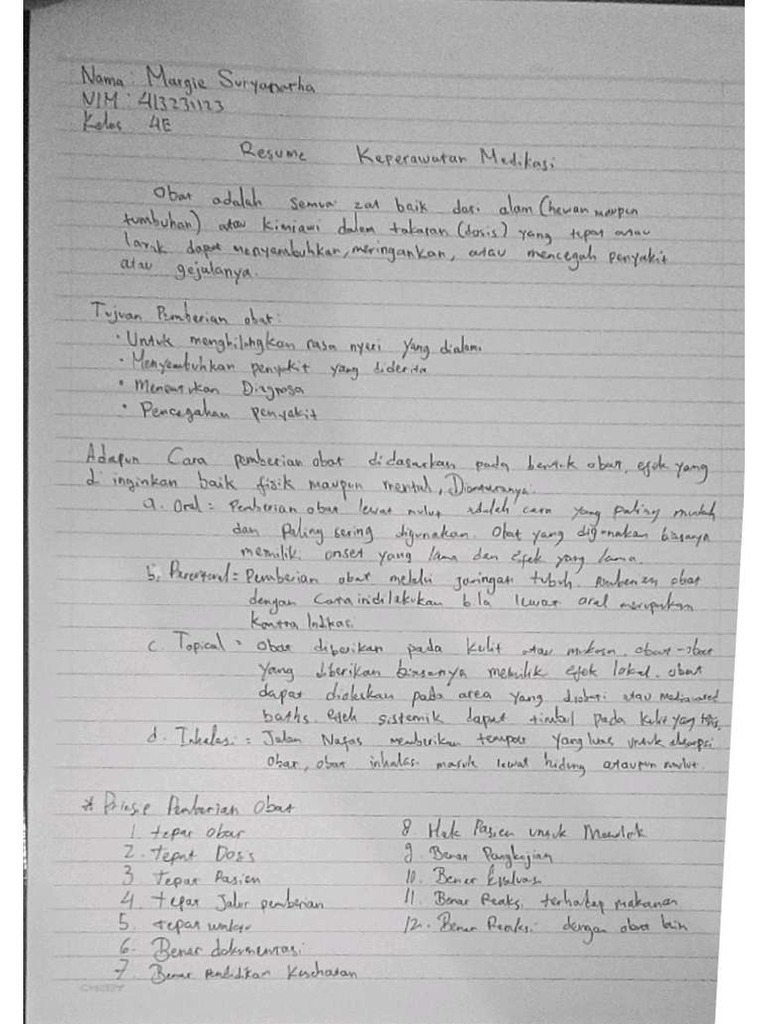 Nama : Margie Suryanartha
NIM : 413231123
Kelas 4E
Resume Keperawatan Medikasi
Obat adalah semua zat baik dari alam (hewan maupun
tumbuhan) atau kimiawi dalam takaran (dosis) yang tepat atau
layak dapat menyembuhkan, meringankan, atau mencegah penyakit
atau gejalanya.
Tujuan Pemberian obat :
• Untuk menghilangkan rasa nyeri yang dialami
• Menyembuhkan penyakit yang diderita
• Menentukan Diagnosa
• Pencegahan penyakit
Adapun Cara pemberian obat didasarkan pada bentuk obat, efek yang
di inginkan baik fisik maupun mental, Diantaranya:
a. Oral = Pemberian obat lewat mulut adalah cara yang paling mudah
dan Paling sering digunakan. Obat yang digunakan biasanya
memiliki onset yang lama dan efek yang lama.
b. Parenteral = Pemberian obat melalui jaringan tubuh. Pemberian obat
dengan cara ini dilakukan bila lewat oral merupakan
kontra Indikasi
c. Topical = Obat diberikan pada kulit atau mukosa. obat-obat
yang diberikan biasanya memiliki efek lokal. obat
dapat dioleskan pada area yang diobati atau Medicated
baths. efek sistemik dapat timbul pada kulit yang tipis.
d. Inhalasi = Jalan Nafas memberikan tempat yang luas untuk absorpsi
obat, obat inhalasi masuk lewat hidung ataupun mulut.
* Prinsip Pemberian Obat
1. tepat obat
2. Tepat Dosis
3 Tepat Pasien
4 tepat Jalur pemberian
5 tepat waktu
6. Benar dokumentasi
7. Benar Pendidikan Kesehatan
8 Hak Pasien untuk Menolak
9 Benar Pengkajian
10. Benar Evaluasi
11. Benar Reaksi terhadap makanan
12. Benar Reaksi dengan obat lain